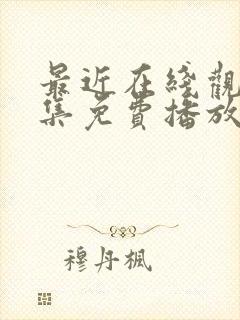 最近在綫觀
集免費播放
穆丹楓